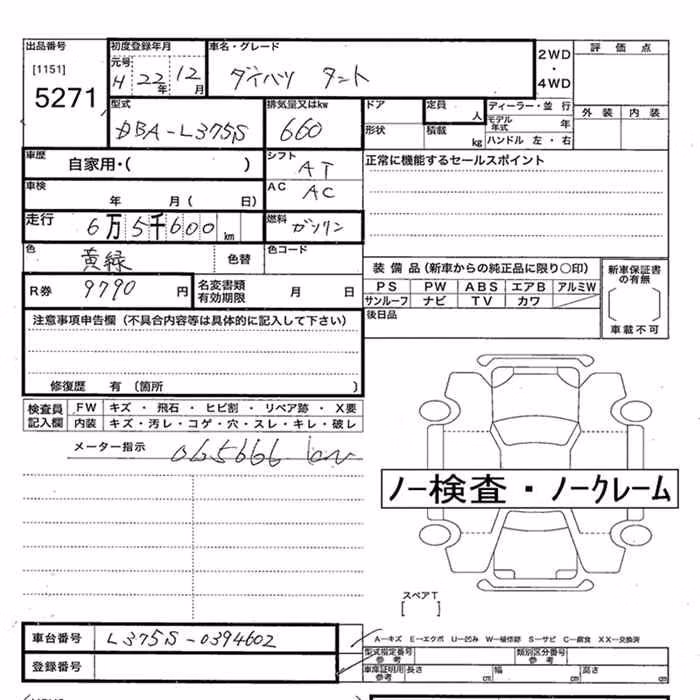 出品番号 初度登録年月 車名・グレード 2WD・4WD 評価点
[1151] 元号
5271 H 22年 12月 ダイハツ タント
型式 排気量又はkw ドア 定員 人 ディーラー・並行 外装 内装
DBA-L375S 660 形状 積載 kg モデル年式 年
ハンドル 左・右
車歴 自家用・( ) シフト AT 正常に機能するセールスポイント
車検 年 月( 日) AC AC
走行 6万5千600km 燃料 ガソリン
色 黄緑 色替 色コード
装備品(新車からの純正品に限り○印) 新車保証書の有無
R券 9790円 名変書類有効期限 月 日 PS PW ABS エアB アルミW
サンルーフ ナビ TV カワ 車載不可
注意事項申告欄(不具合内容等は具体的に記入して下さい) 後日品
修復歴 有〔箇所 〕
検査員記入欄 FW キズ・飛石・ヒビ割・リペア跡・X要
内装 キズ・汚レ・コゲ・穴・スレ・キレ・破レ
メーター指示 065666 km
ノー検査・ノークレーム
スペアT
[ ]
車台番号 L375S-0394602 A-キズ E-エクボ U-凹み W-補修跡 S-サビ C-腐食 XX-交換済
型式指定番号 参考 類別区分番号 参考
登録番号 車庫証明用参考 長さ cm 幅 cm 高さ cm